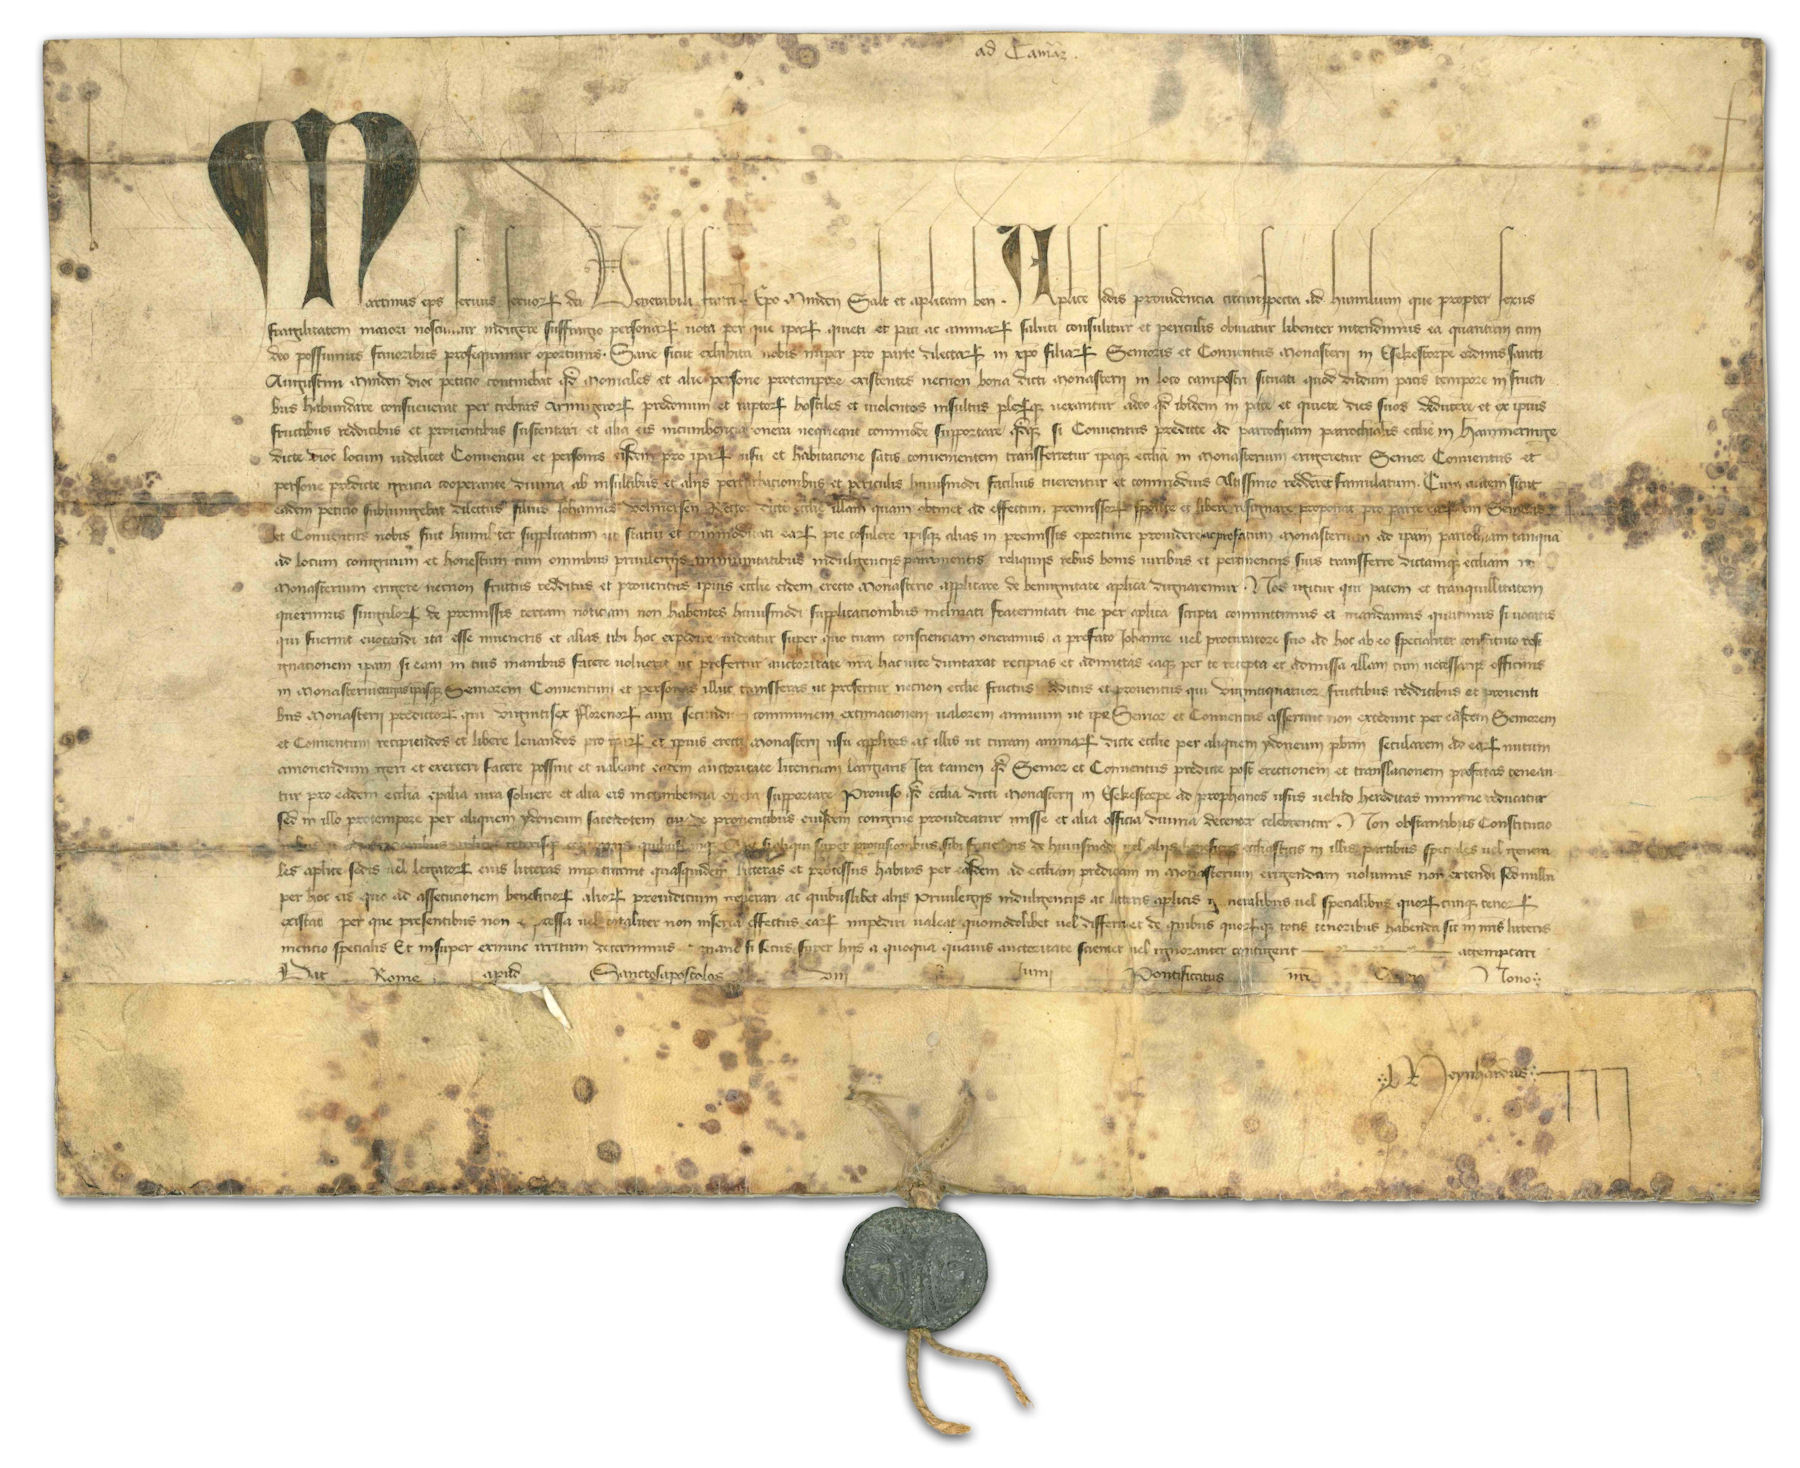 ad Camar.
Martinus eps servus servorꝝ dei Venerabili fratri Epo Minden Salt et aplicam ben. Aplice sedis providencia circumspecta ad humilium que propter sexus
fragilitatem maiori noscuntur indigere suffragio personarꝝ vota per que iparꝝ quieti et paci ac animarꝝ saluti consulitur et periculis obviatur libenter intendimus ea quantum cum
deo possumus favoribus prosequimur oportunis. Sane sicut exhibita nobis nuper pro parte dilectarꝝ in xpo filiarꝝ Senioris et Conventus Monasterii in Esekestorpe ordinis sancti
Augustini Minden dioc peticio continebat qd Moniales et alie persone protempore existentes necnon bona dicti Monasterii in loco campestri situati quod dudum pacis tempore in fructi
bus habundare consueverat per crebras Armigerorꝝ predonum et raptorꝝ hostiles et violentos insultus plerꝝq vexantur adeo qd ibidem in pace et quiete dies suos deducere et ex ipius
fructibus redditibus et proventibus sustentari et alia eis incumbencia onera nequeant commode supportare qdq si Conventus predicte ad parrochiam parrochialis ecclie in Hammeringe
dicte dioc locum videlicet Conventui et personis eisdem pro iparꝝ usu et habitacione satis convenientem transferretur ipaq ecclia in Monasterium erigeretur Senior Conventus et
persone predicte gracia cooperante divina ab insultibus et aliis perturbacionibus et periculis huiusmodi facilius tuerentur et commodius Altissimo redderet famulatum. Cum autem sicut
eadem peticio subiungebat dilectus filius Johannes Volmersen Rector dicte ecclie illam quam obtinet ad effectum premissorꝝ sponte et libere resignare proponat pro parte earꝝdem Senioris
et Conventus nobis fuit humiliter supplicatum ut statui et commoditati earꝝ pie cosulere ipisq alias in premissis oportune providere ac prefatum Monasterium ad ipam parrochiam tanqua
ad locum congruum et honestum cum omnibus privilegiis immunitatibus indulgenciis reliquiis rebus bonis iuribus et pertinenciis suis transferre dictamq eccliam in
Monasterium erigere necnon fructus redditus et proventus ipius ecclie eidem erecto Monasterio applicare de benignitate aplica dignaremur. Nos igitur qui pacem et tranquillitatem
querimus singulorꝝ de premissis certam noticiam non habentes huiusmodi supplicacionibus inclinati fraternitati tue per aplica scripta committimus et mandamus quatinus si vocatis
qui fuerint evocandi ita esse inveneris et alias tibi hoc expedire videatur super quo tuam conscienciam oneramus a prefato Johanne vel procuratore suo ad hoc ab eo specialiter constituto resi
gnacionem ipam si eam in tuis manibus facere voluerit ut prefertur auctoritate nra hac vice dumtaxat recipias et admittas eaq per te recepta et admissa illam cum necessariis officinis
in Monasterium erigas ipisq Seniorem Conventum et personas illuc transferas ut prefertur necnon ecclie fructus redditus et proventus qui vigintiquatuor fructibus redditibus et proventi
bus Monasterii predictorꝝ qui vigintisex florenorꝝ auri secundum communem extimacionem valorem annuum ut ipe Senior et Conventus asserunt non excedunt per easdem Seniorem
et Conventum recipiendos et libere levandos pro iparꝝ et ipius erecti Monasterii usu applices ac illis ut curam animarꝝ dicte ecclie per aliquem ydoneum pbrm secularem ad earꝝ nutum
amovendum geri et exerceri facere possint et valeant eadem auctoritate licenciam largiaris Ita tamen qd Senior et Conventus predicte post erectionem et translacionem prefatas tenean
tur pro eadem ecclia epalia iura solvere et alia eis incumbencia onera supportare Proviso qd ecclia dicti Monasterii in Esekestorpe ad prophanos usus hereditas minime reducatur
sed in illo protempore per aliquem ydoneum sacerdotem cui de proventibus eiusdem congrue provideatur misse et alia officia divina decenter celebrentur. Non obstantibus Constitucio
nibus aplicis contrariis quibuscunq Aut si aliqui super provisionibus sibi faciendis de huiusmodi vel aliis beneficiis ecclesiasticis in illis partibus speciales vel genera
les aplice sedis vel legatorꝝ eius litteras impetrarint quasquidem litteras et processus habitos per easdem ad eccliam predictam in Monasterium erigendam volumus non extendi sed nullu
per hoc eis quo ad assecucionem beneficiorꝝ aliorꝝ preiudicium generari ac quibuslibet aliis Privilegiis indulgenciis ac litteris aplicis generalibus vel specialibus quorꝝcunq tenorꝝ
existant per que presentibus non expressa vel totaliter non inserta effectus earꝝ impediri valeat quomodolibet vel differri et de quibus quorꝝq totis tenoribus habenda sit in nris litteris
mencio specialis Et insuper exnunc irritum decernimus et inane si secus super hiis a quoqua quavis auctoritate scienter vel ignoranter contigerit attemptari
Dat Rome apud Sanctosapostolos viii Junii Pontificatus nri Anno Nono
Neynhardus